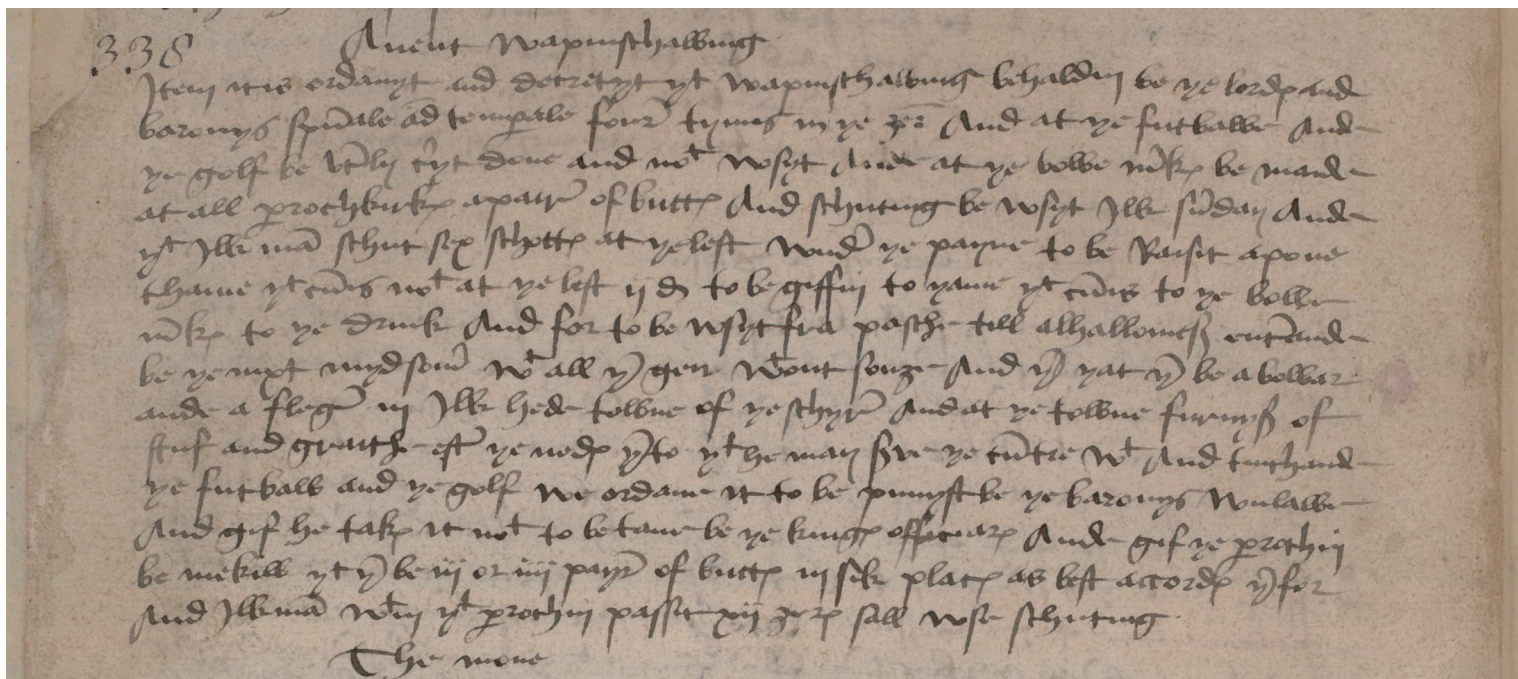 338 Anent wapinschawing
Item it is ordanyt and decretyt yt wapinschawing behaldin be ye lordis and
baronys spuale ād temperale four tymis in ye ʒer And at ye futbawe Ande
ye golf be vtly cryt done and not wsyt Ande at ye bowe mkis be maide
at all prochkirkis apair of buttis And schuting be wsyt Ilk sūday Ande
yt Ilk mā schut sex schottis at ye lest wnder ye payne to be Raisit apone
thame yt cūis not at ye lest ij d to be giffin to yame yt cūis to ye bowe
mkis to ye drink And for to be wsyt fra pasche till alhallomes efter Ande
be ye nixt mydsomer wt all yer geir wtout fonʒe And yt yat yr be a bowar
ande a flegar in Ilk hede towne of ye schyr And at ye towne furnyss of
stuf and graith eft ye nedis yrto yt he may serve ye cūtre wt And tuichande
ye futbaw and ye golf we ordane it to be punyst be ye baronys wnlawe
And gif he takis it not to be tane be ye kingis officiaris Ande gif ye prochin
be mekill yt yr be iij or iiij payr of buttis in sik placis as best accordis yrfor
And Ilk mā wtin yt prochin passit xij ʒeris sall wse schuting
The mone